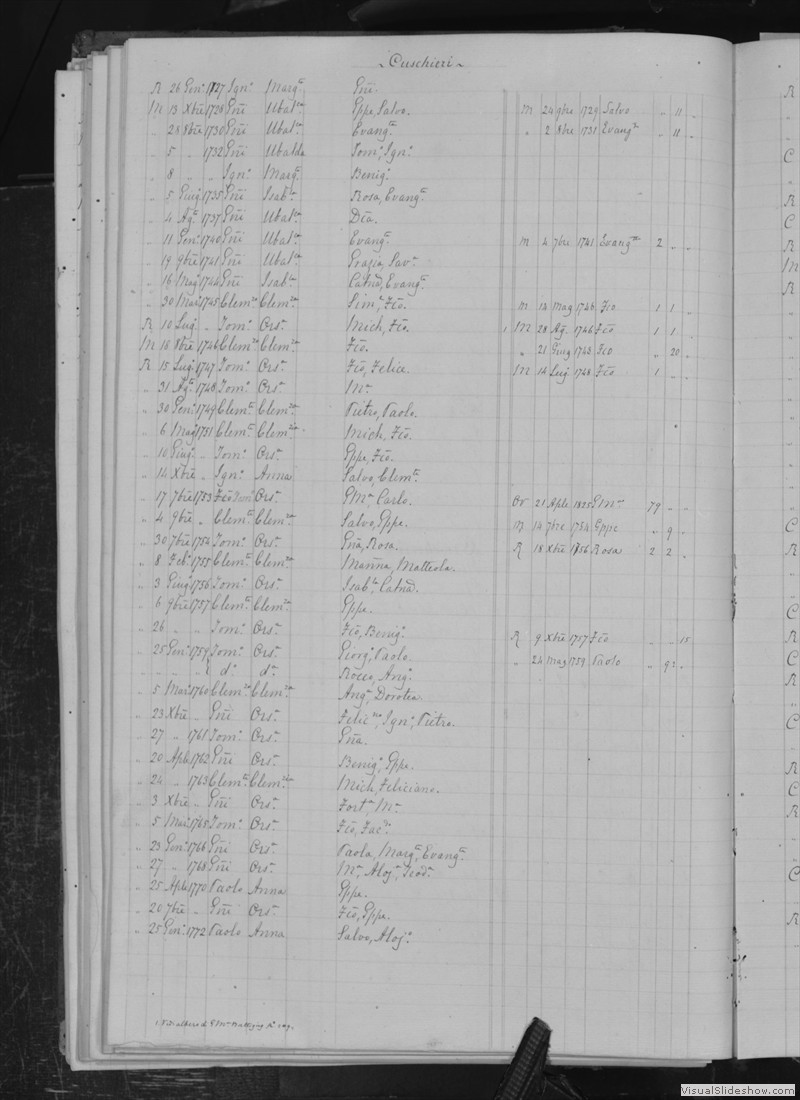 Cuschieri
R 26 Gen.º 1727 Ign.º Marg.ta Gñi.
M 13 Xbre 1728 Gñi Ubal.ca Gppe, Salvo. M 24 9bre 1729 Salvo " 11 "
" 28 8bre 1730 Gñi Ubal.ca Evang.ta " 2 8bre 1731 Evang.ta " 11 "
" 5 " 1732 Gñi Ubalda Tom.º, Ign.º
" 8 " " Ign.º Marg.ta Benig.º
" 5 Giug 1735 Gñi Isab.la Rosa, Evang.ta
" 4 Ag.to 1737 Gñi Ubal.ca
" 11 Gen.º 1740 Gñi Ubal.ca Evang.ta M 4 7bre 1741 Evang.ta 2 " "
" 19 9bre 1741 Gñi Ubal.ca Grazia, Sav.ª
" 16 Mag 1744 Gñi Isab.la Catna, Evang.ta
" 30 Mar 1745 Clem.te Clem.za Sim.e, Fco. M 14 Mag 1746 Fco 1 1 "
R 10 Lug. " Tom.º Ors.ª Mich, Fco. 1 M 28 Ag. 1746 Fco 1 1 "
M 16 8bre 1746 Clem.te Clem.za Fco. " 21 Giug 1748 Fco " 20 "
R 15 Lug. 1747 Tom.º Ors.ª Fco, Felice. M 14 Lug 1748 Fco 1 " "
" 31 Ag.to 1748 Tom.º Ors.ª M.ª
" 30 Gen.º 1749 Clem.te Clem.za Pietro, Paolo.
" 6 Mag 1751 Clem.te Clem.za Mich, Fco.
" 14 Giug.º " Tom.º Ors.ª Gppe, Fco.
" 14 Xbre " Ign.º Anna Salvo, Clem.te
" 17 7bre 1753 Fco Tom.º Ors.ª GM.ª Carlo. Or 21 Aple 1825 GM.ª 79 " "
" 4 9bre " Clem.te Clem.za Salvo, Gppe. M 14 7bre 1754 Gppe " 9 "
" 30 7bre 1754 Tom.º Ors.ª Gña, Rosa. R 18 Xbre 1756 Rosa 2 2 "
" 8 Feb.º 1755 Clem.te Clem.za Marina, Matteola.
" 3 Giug 1756 Tom.º Ors.ª Isab.la Catna.
" 6 9bre 1757 Clem.te Clem.za Gppe.
" 26 " " Tom.º Ors.ª Fco, Benig.º R 9 Xbre 1757 Fco " " 15
" 25 Gen.º 1759 Tom.º Ors.ª Georg.º, Paolo " 24 Mag 1759 Paolo " 9 2 "
" " " " d.º d.ª Rocco, Ang.º
" 5 Mar.º 1760 Clem.te Clem.za Ang.ª, Dorotea.
" 23 Xbre " Gñi Ors.ª Felic.no, Ign.º, Pietro.
" 27 " 1761 Tom.º Ors.ª Gña.
" 20 Aple 1762 Gñi Ors.ª Benig.º, Gppe.
" 24 " 1763 Clem.te Clem.za Mich, Feliciano.
" 3 Xbre " Gñi Ors.ª Fort.ª, M.ª
" 5 Mar.º 1765 Tom.º Ors.ª Fco,
" 23 Gen.º 1766 Gñi Ors.ª Paola, Marg.ta, Evang.ta
" 27 " 1768 Gñi Ors.ª M.ª Aloj.ª, Teod.ª
" 25 Aple 1770 Paolo Anna Gppe.
" 20 7bre " Gñi Ors.ª Fco, Gppe.
" 25 Gen.º 1772 Paolo Anna Salvo, Aloj.º
VisualSlideshow.com